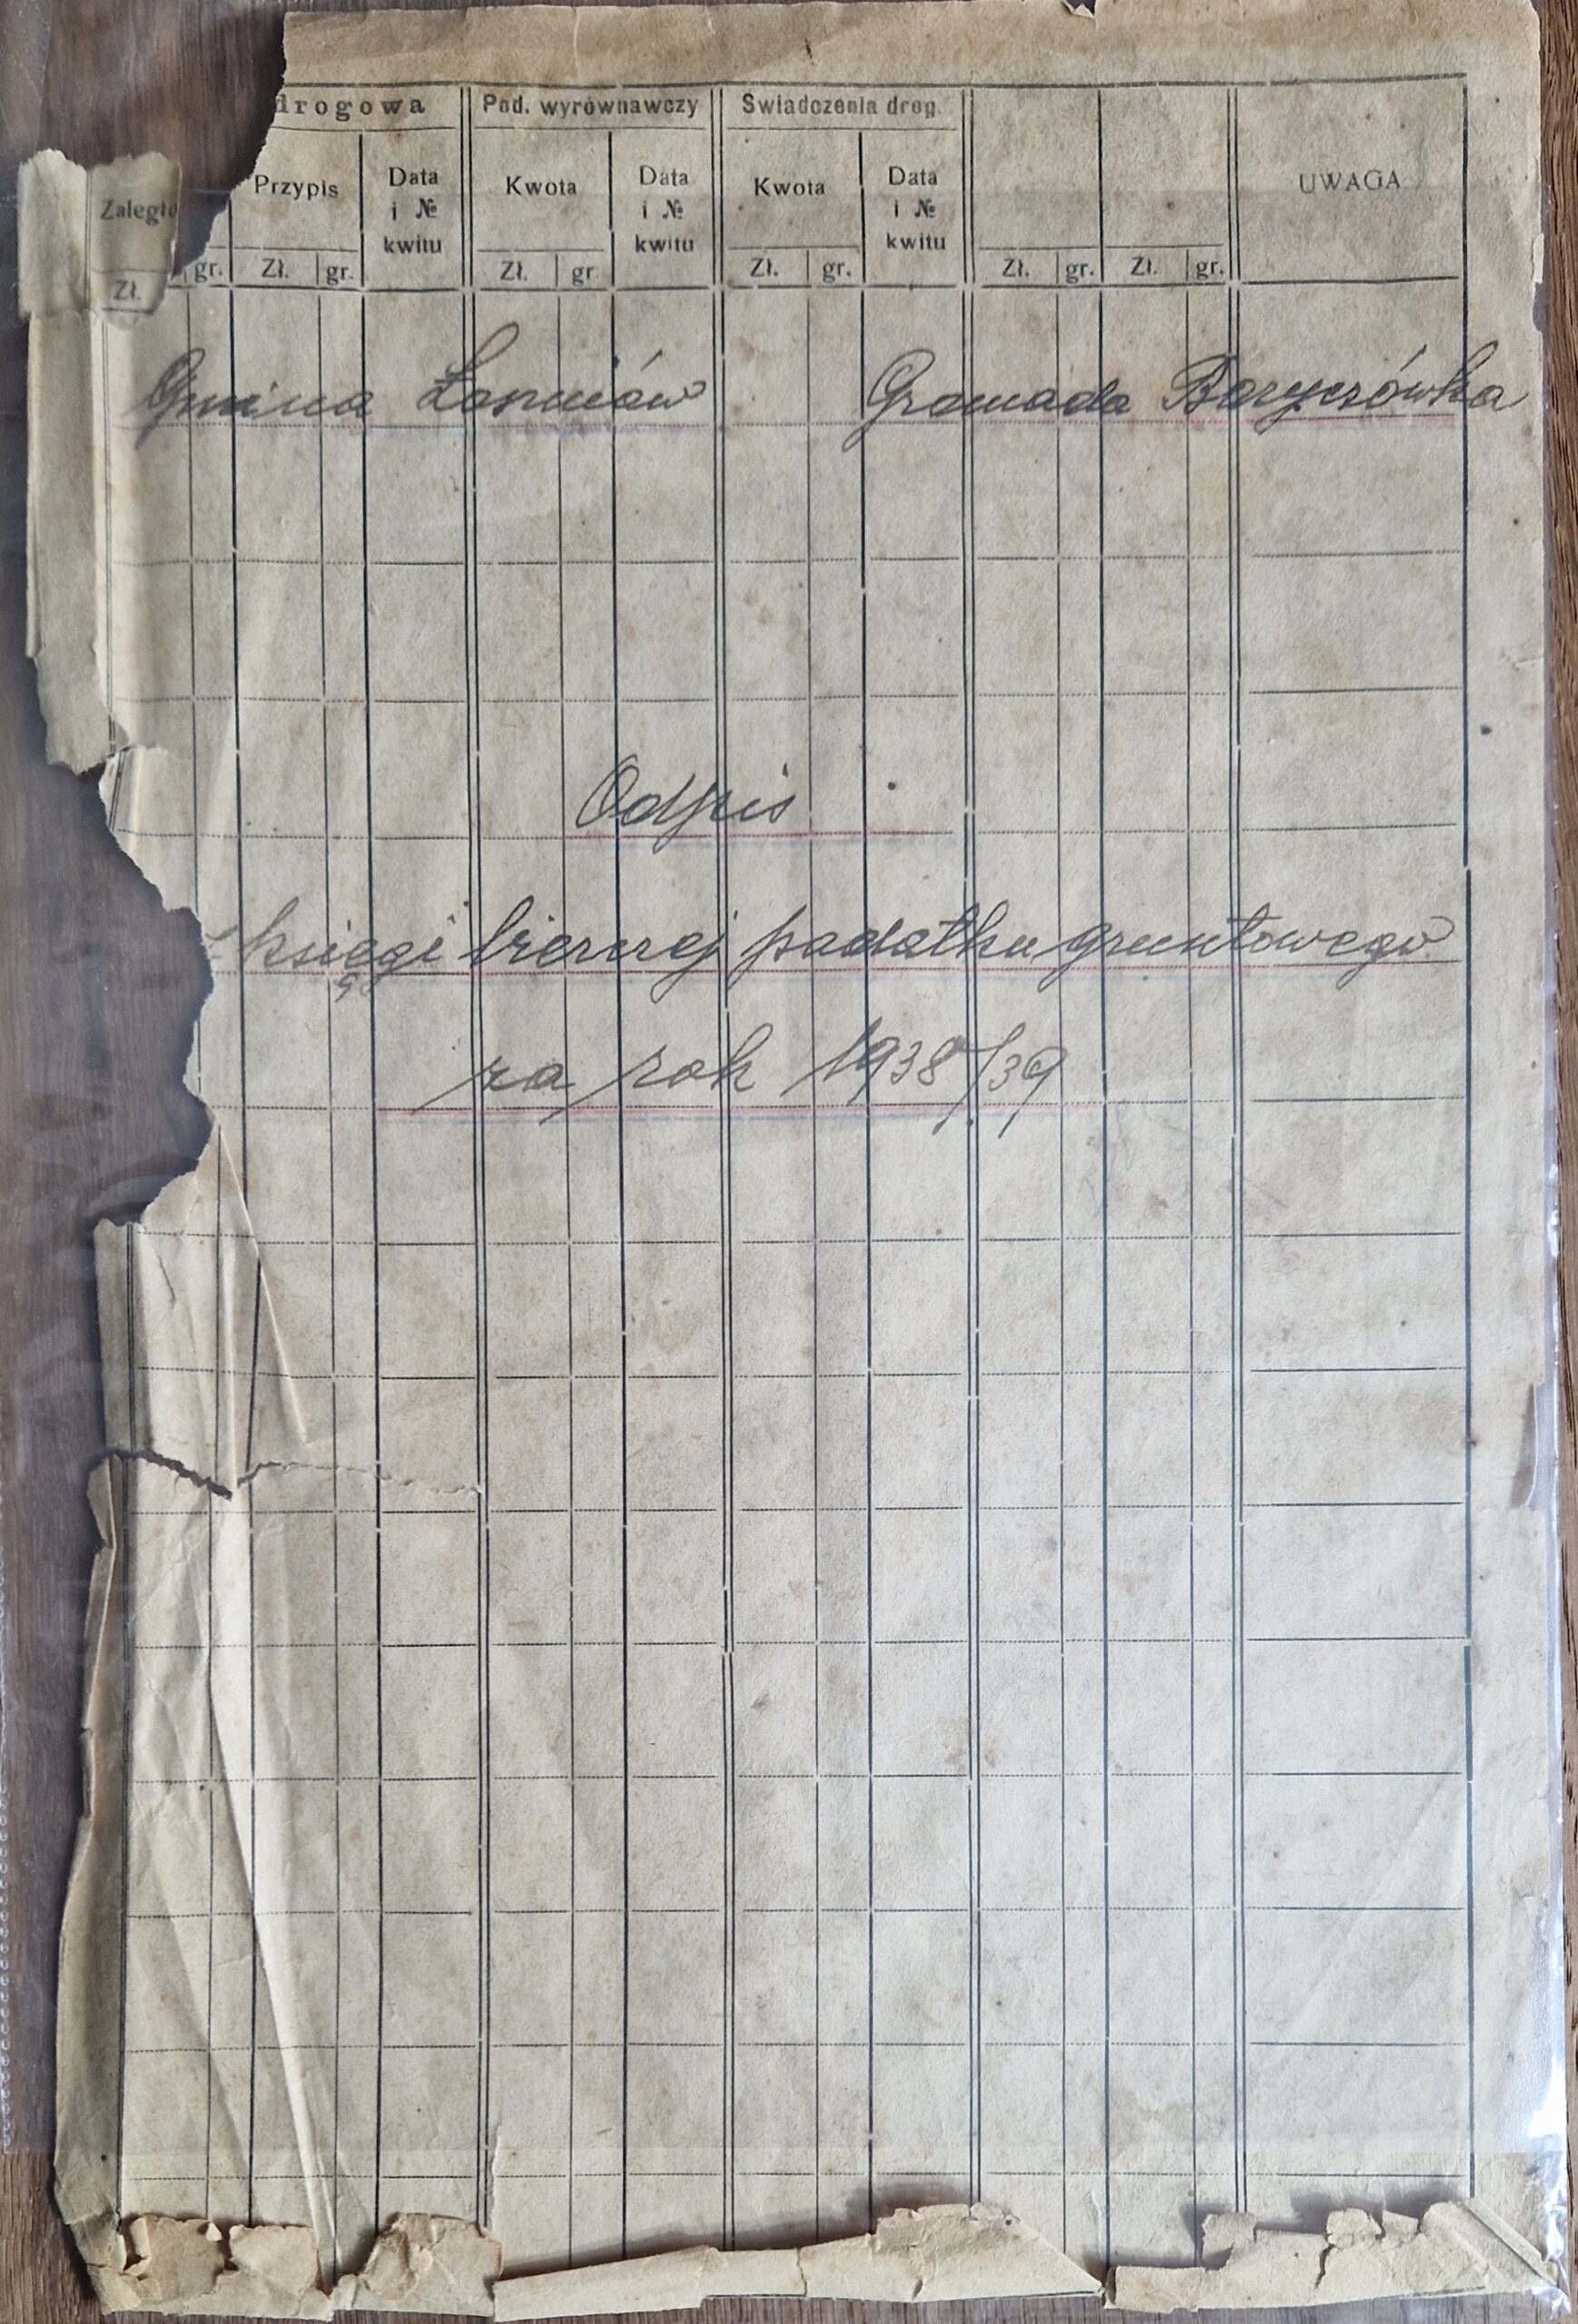 drogowa Pod. wyrównawczy Świadczenia drog.
Zaległo Przypis Data i № kwitu Kwota Data i № kwitu Kwota Data i № kwitu UWAGA
Zł. gr. Zł. gr. Zł. gr Zł. gr. Zł. gr. Zł. gr.
Gmina Łosniów Gromada Boryczówka
Odpis
księgi biernej podatku gruntowego
za rok 1938/39